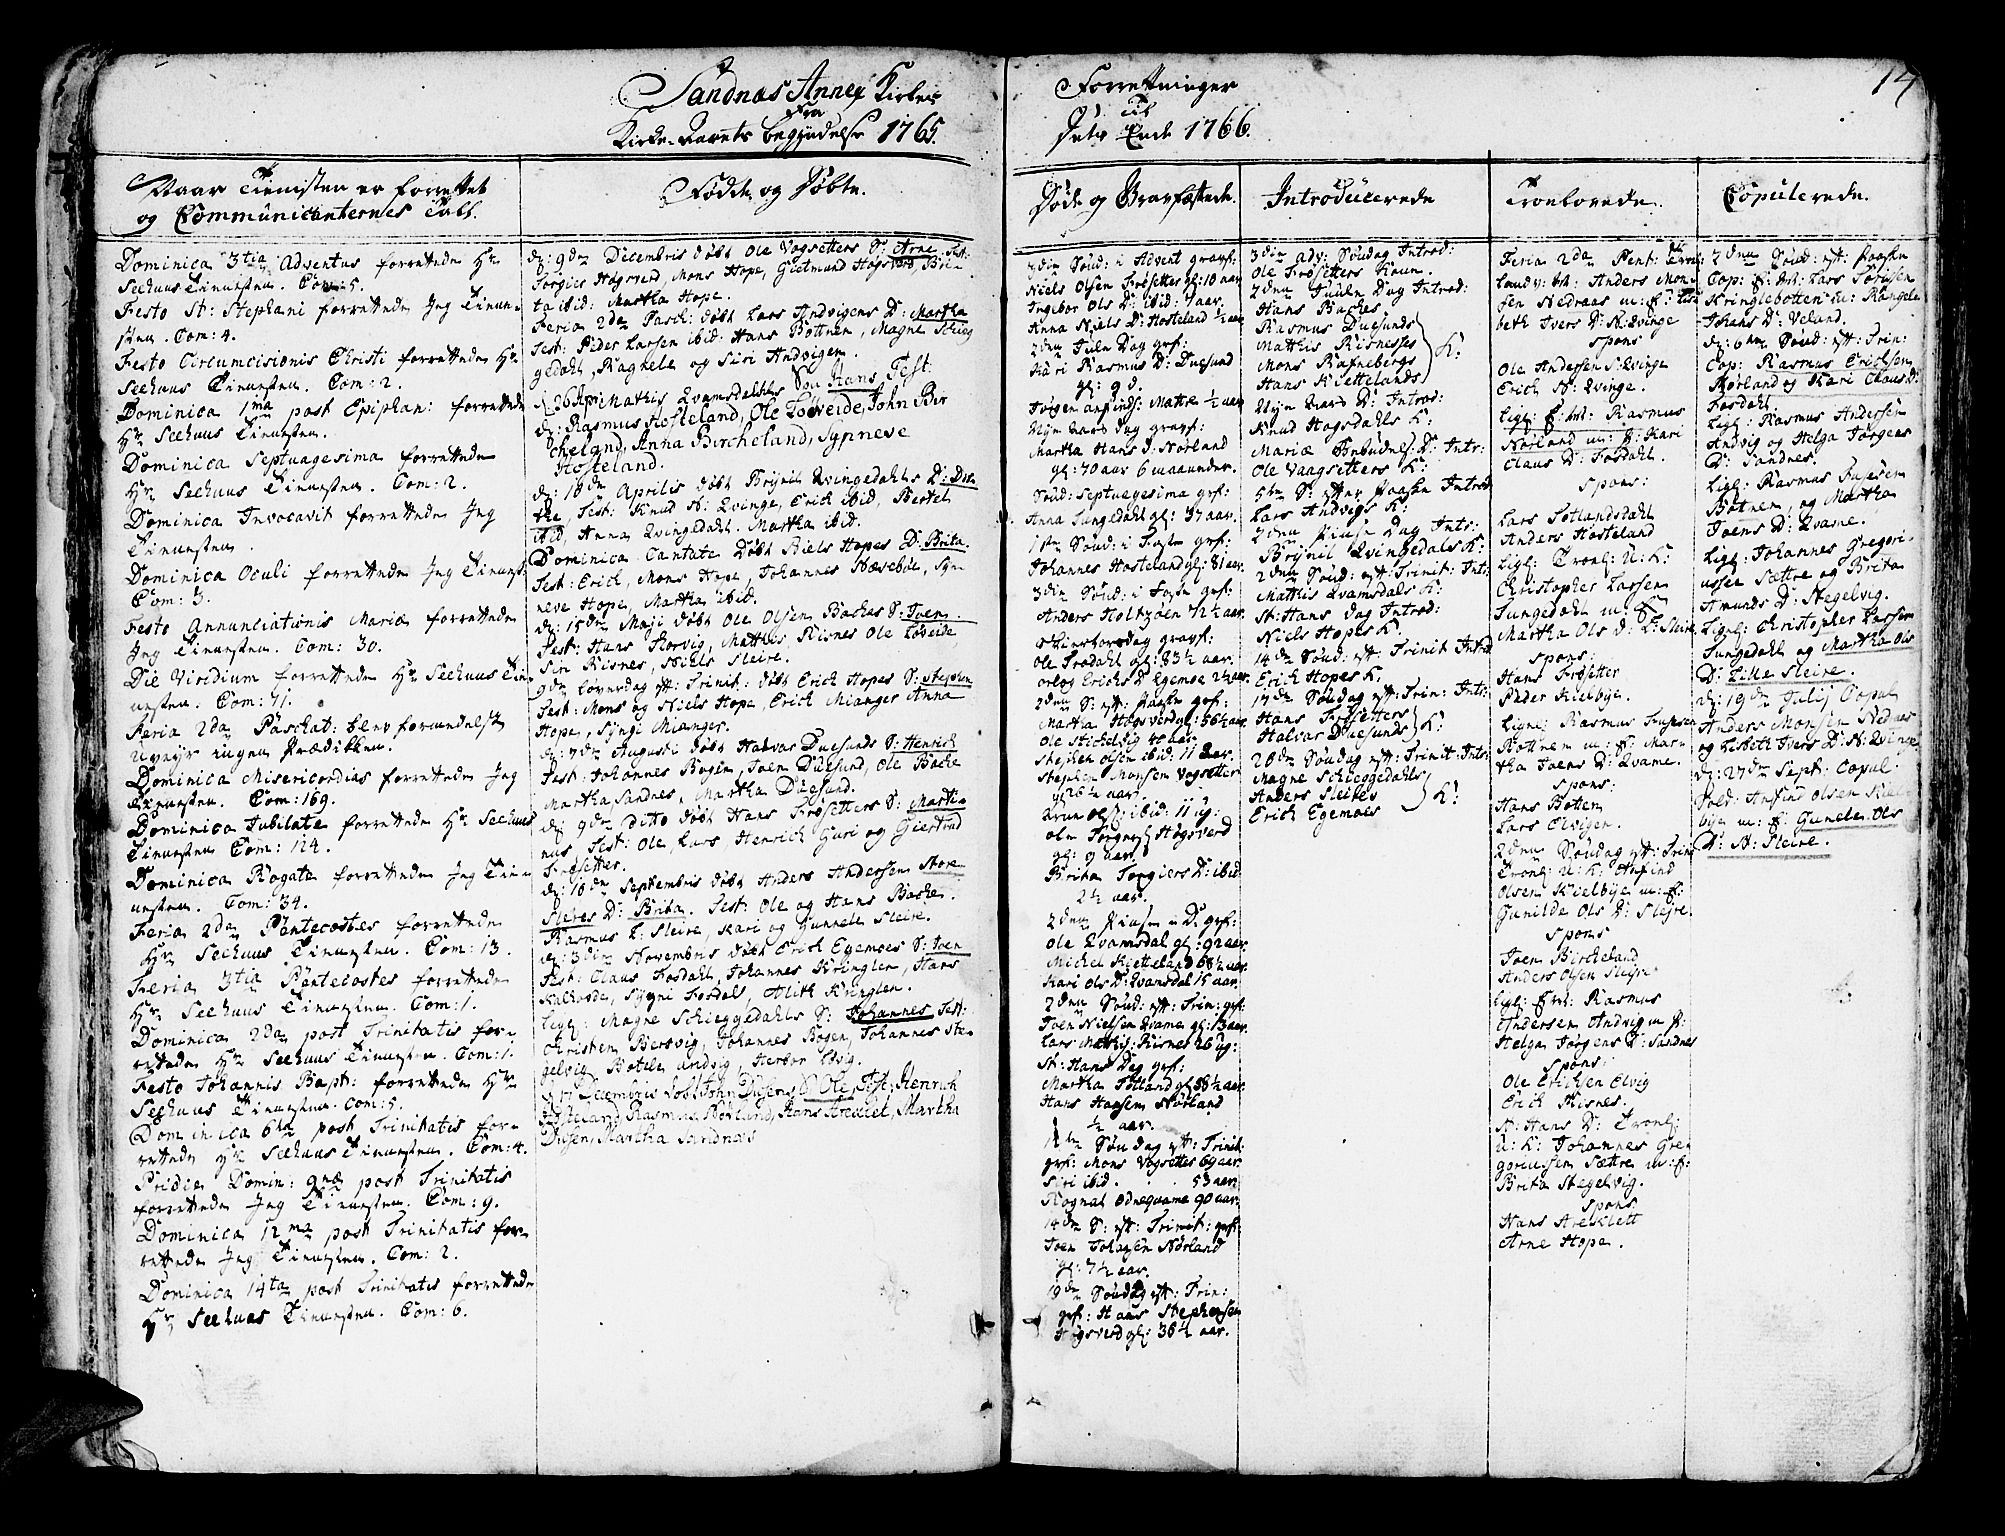 Sandnæs Annex Kirkes Forrettninger
Fra Til
Kirke-Aarets begyndelse 1765. Dets Ende 1766.
14
Naar Tienisten er forrettet
og Communicanternes Tall.
Dominica 3tia Adventus forrettede Hr
Seehuus Tienesten. Com: 5.
Festo St: Stephani forrettede Jeg Tienes-
sten. Com: 4.
Festo Circumcisionis Christi forrettede Hr
Seehuus Tienesten. Com: 2.
Dominica 1ma post Epiphan: forrettede
Hr Seehuus Tienesten.
Dominica Septuagesima forrettede
Hr Seehuus Tienesten. Com: 2.
Dominica Invocavit forrettede Jeg
Tienesten.
Dominica Oculi forrettede Jeg Tienest:
Com: 3.
Festo Annunciationis Mariæ forrettede
Jeg Tienesten. Com: 30.
Die Viridium forrettede Hr Seehuus Tie-
nesten. Com: 71.
Feria 2da Paschat: blev formedelst
Prædiken.
Dominica Misericordias forrettede Jeg
Tienesten. Com: 169.
Dominica Jubilate forrettede Hr Seehuus
Tienesten Com: 124.
Dominica Rogate forrettede Jeg Tien-
nesten. Com: 34.
Feria 2da Pentecostes forrettede
Hr Seehuus Tienesten. Com: 13.
Feria 3tia Pentecostes forrettede
Hr Seehuus Tienesten. Com: 1.
Dominica 2da post Trinitatis for-
rettede Hr Seehuus Tienesten. Com: 1.
Festo Johannis Bapt: forrettede Hr
Seehuus Tienesten. Com: 5.
Dominica 6ta post Trinitatis for-
rettede Hr Seehuus Tienesten. Com: 4.
Pridie Domin: 9na post Trinitatis
forrettede Jeg Tienesten. Com: 9.
Dominica 12ma post Trinitatis for-
rettede Jeg Tienesten. Com: 2.
Dominica 14ta post Trinitatis forrettede
Hr Seehuus Tienesten. Com: 6.
Fødde og Døbte.
d: 9de Decembris døbt Ole Vogsetters S: Arne Test:
Torgies Høgsverd Mons Hope, Giertrud Høgsverd, Bri-
ta ibid: Martha Hope.
Feria 2da Pasch: døbt Lars Andvigens D: Martha
Test: Peder Larsen ibid: Hans Botnen, Magne Schieg
gedahl, Raghele og Siri Andvigen.
d: 26 Apr: Mathis Qvamsdahls Søn Hans, Test:
Rasmus Hosteland, Ole Løveide, John Bir
cheland, Anna Bircheland, Synneve
Hosteland.
d: 18de Aprilis døbt Brynil Qvingedahls D: Dor-
the Test: Knud St: Qvinge, Erich ibid, Bertel
ibid, Anna Qvingedahl, Martha ibid.
Dominica Cantate døbt Niels Hopes D: Brita.
Test: Erich, Mons Hope, Johannes Nævebøe, Syn-
neve Hope, Martha ibid.
d: 15de Maji døbt Ole Olsen Baches S: Joen.
Test: Hans Storvig, Matthis Risnes Ole Løveide,
Siri Risnes, Niels Sleire.
9de Løverdag eft: Trinit: døbt Erich Hopes S: Stephen
Test: Mons og Niels Hope, Erich Mianger Anna
Hope, Syngi Mianger.
d: 7de Augusti døbt Halvar Duesunds S: Henrich
Test: Johannes Bogen, Joen Duesund, Ole Bache
Martha Sandnes, Martha Duesund.
d: 9de ditto døbt Hans Frøsetters S: Marti-
nus, Test: Ole, Lars, Henrich, Guri og Giertrud
Frøsetter.
d: 18de Septembris døbt Anders Andersen Store
Sleires D: Brita. Test: Ole og Hans Bache.
Rasmus L: Sleire, Kari og Gunnele Sleire.
d: 3die Novembris døbt Erich Egemoes S: Joen
Test: Claus Fosdahl, Johannes Kringlen, Hans
Kalhovde, Sygni Fosdal, Alith Kringlen.
ligl: Magne Schieggedahls S: Johannes Test:
Christen Bersvig, Johannes Bogen, Johannes Ste-
gelvig, Botele Andvig, Herbor Elvig.
d: 17 Decembris døbt John Dusens S: Ole Test: Henrich
Hosteland, Rasmus Nørland, Hans Areclet, Martha
Dusen, Martha Sandnæs
Døde og Gravfæstede.
3die Sønd: i Advent gravf:
Niels Olsen Frøsetter gl: 10 aar
Ingebor Ols D: ibid: 7 aar.
Anna Niels D: Hosteland ½ aar
2den Jule Dag grf:
Kari Rasmus D: Duesund
gl: 9 d.
Jørgen Anfinds: Mattre ½ aar
Nyt aars dag gravf:
Martha Hans D: Nørland
gl: 70 aar 6 maaneder.
Sønd: Septuagesima grf:
Anna Lungedahl gl: 37 aar.
1ste Sønd: i Faste grf:
Johannes Hosteland gl: 81 aar.
3die Sønd: i Faste grf:
Anders Holtzøen 72½ aar.
Skiertorsdag gravf:
Ole Fosdahl gl: 83½ aar.
Erichs D: Egemoe 2½ aar.
2den S: eft: Paaske grf:
Martha Høgsverd gl: 56½ aar.
Ole Stichelvig 40 aar.
Stephen Olsen ibid: 11 aar.
Stephen Monsen Vogsetter
gl: 26½ aar.
Ols: ibid: 11 ug:
Ole Torgiers Høgsverd
gl: 9 aar.
Brita Torgiers D: ibid
2½ aar.
2den Pintse D: grf:
Ole Qvamsdal gl: 92 aar.
Michel Kietteland 68½ aar.
Kari Ols D: Qvamsdal 15 aar.
2den Sønd: eft: Trin: grf:
Joen Nielsen Qvame gl: 13 aar.
Lars Mathis: Risnes 26 ug:
St: Hans Dag grf:
Martha Totland gl: 58½ aar.
Hans Hansen Nørland
½ aar.
12te Søndag eft: Trinit:
grf: Mons Vogsetter 69 aar.
Siri ibid. 53 aar.
Rognal Odneqvame 90 aar.
14de S: eft: Trinit: grf:
Joen Johnsen Nørland
gl: 7½ aar.
19de Søndag eft: Trin:
grf: Hans Stephensen
Høgsverd gl: 36½ aar.
Introducerede
3die adv: Søndag Introd:
Ole Frøsetters Kone.
2den Juule Dag Introd:
Hans Baches
Rasmus Duesunds
Matthis Risneses
Mons Rafnebergs
Hans Kiettelands
K:
Nyt aars D: Introd:
Knud Hogsdahls K:
Mariæ Bebud: D: Intr:
Ole Vaagsetters K:
5te S: efter Paaske Introd
Lars Andvigs K:
2den Pintse Dag Intr:
Brynil Qvingedals K:
2den Sønd: eft: Trinit: Int:
Mathis Qvamsdals K:
St: Hans Dag Introd:
Niels Hopes K:
14de Sønd: eft: Trinit Introd
Erich Hopes K.
17de Søndag eft: Trin: Intr:
Hans Frøsetters
Halvar Duesunds
K:
20de Søndag eft: Trinit: Intr:
Magne Schieggedahls
Anders Sleires
Erich Egemoes
K:
Troelovede.
Feria 2da Pent: Troel:
Landv: Anders Mon-
sen Nedraas m: P: Lisa
beth Ivers D: N: Qvinge
Spons
Ole Andersen S: Qvinge
Erich N: Qvinge.
ligl: Rasmus
Nørland m: P: Kari
Claus D: Fosdahl.
Spons:
Lars Totlandsdahl
Anders Hosteland
ligl: Troel: U: K:
Christopher Larsen
Lungedahl m: P:
Martha Ols D: L: Sleire
Spons:
Hans Frøsetter
Peder Kielbye.
Ligel: Rasmus
Bottnem m: P: Mar-
tha Joens D: Qvame.
Spons:
Hans Botten
Lars Elvigen.
2den Søndag eft: Trin:
Troel: U: K: Anfind
Olsen Kielbye m: P:
Gunilde Ols D: Sleire
Spons
Joen Bircheland
Anders Olsen Sleyre
ligl: Rasmus
Andersen Andvig m P:
Helga Jørgens D: Sandnes
Spons:
Ole Erichsen Elvig
Erich Risnes.
St: Hans D: Troel:
U: K: Johannes Gre-
goriussen Sættre m: P:
Brita Stegelvig.
Spons:
Hans Areklett
Arne Hope.
Copulerede.
2den Sønd: eft: Paaske
Cop: Lars Tørrisen
Kringlebotten m: Rangele
Johans D: Veland.
d: 6te Sønd: eft: Trin:
Cop: Rasmus Erichsen
Nørland og Kari Claus D:
Fosdahl
Ligl: Rasmus Andersen
Andvig og Helga Jørgens
D: Sandnes.
Ligl: Rasmus
Botnen, og Martha
Joens D: Qvame.
Ligl: Johannes Gregori-
ussen Sættre og Brita
Amunds D: Stegelvig.
Ligl: Christopher Larsen
Lungedahl og Martha Ols
D: Lille Sleire.
d: 19de Julij Copul
Anders Monsen Nedraas
og Lisbeth Ivers D: N: Qvinge
d: 27de Sept: Copul:
Sold: Anfind Olsen Kiel-
bye m: P: Gunele Ols
D: St: Sleire.